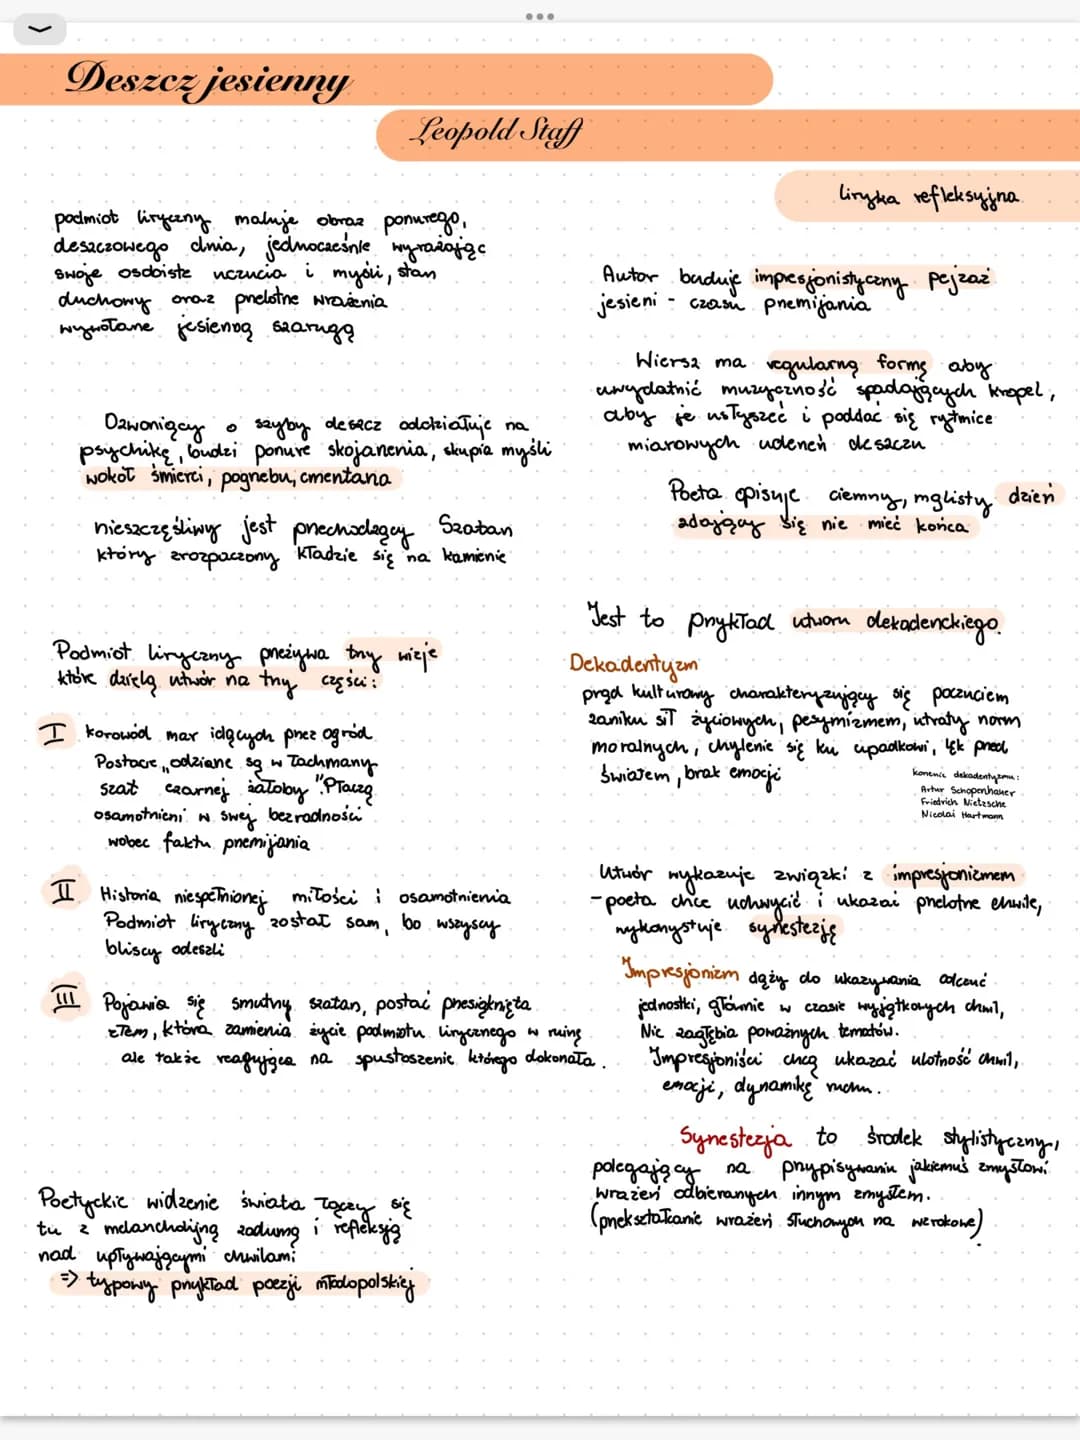 Deszcz jesienny
Leopold Staff
liryka refleksyjna
podmiot liryczny maluje obraz ponurego,
deszczowego dnia, jednocześnie wyrażając
swoje osobiste uczucia i myśli, stan
duchowy oraz przelotne wrażenia
wywołane jesienną szarugą
Dzwoniący o szyby deszcz oddziałuje na
psychikę, budzi ponure skojarzenia, skupia myśli
wokół śmierci, pogrzebu, cmentarza
nieszczęśliwy jest przechodzący Szatan
który zrozpaczony kładzie się na kamienie
Podmiot liryczny przeżywa trzy wizje
które dzielą utwór na trzy części:
I korowód mar idących przez ogród
Postacie „odziane są w łachmany
szat czarnej żałoby". Płaczą
osamotnieni w swej bezradności
wobec faktu przemijania
II Historia niespełnionej miłości i osamotnienia
Podmiot liryczny został sam, bo wszyscy
bliscy odeszli
III Pojawia się smutny szatan, postać przesiąknięta
złem, która zamienia życie podmiotu lirycznego w ruinę
ale także reagująca na spustoszenie którego dokonała.
Poetyckie widzenie świata łączy się
tu z melancholijną zadumą i refleksją
nad upływającymi chwilami
=> typowy przykład poezji młodopolskiej
Autor buduje impresjonistyczny pejzaż
jesieni - czasu przemijania
Wiersz ma regularną formę aby
uwydatnić muzyczność spadających kropel,
aby je usłyszeć i poddać się rytmice
miarowych uderzeń deszczu
Poeta opisuje ciemny, mglisty dzień
zdający się nie mieć końca
Jest to przykład utworu dekadenckiego.
Dekadentyzm
prąd kulturowy charakteryzujący się poczuciem
zaniku sił życiowych, pesymizmem, utraty norm
moralnych, chylenie się ku upadkowi, lęk przed
światem, brak emocji
korzenie dekadentyzmu:
Artur Schopenhauer
Friedrich Nietzsche
Nicolai Hartmann
Utwór wykazuje związki z impresjonizmem
- poeta chce uchwycić i ukazać przelotne chwile,
wykorzystuje synestezję
Impresjonizm dąży do ukazywania odczuć
jednostki, głównie w czasie wyjątkowych chwil,
Nie zagłębia poważnych tematów.
Impresjoniści chcą ukazać ulotność chwil,
emocji, dynamikę ruchu.
Synestezja to środek stylistyczny,
polegający na przypisywaniu jakiemuś zmysłowi
wrażeń odbieranych innym zmysłem.
(przekształcanie wrażeń słuchowych na wzrokowe).